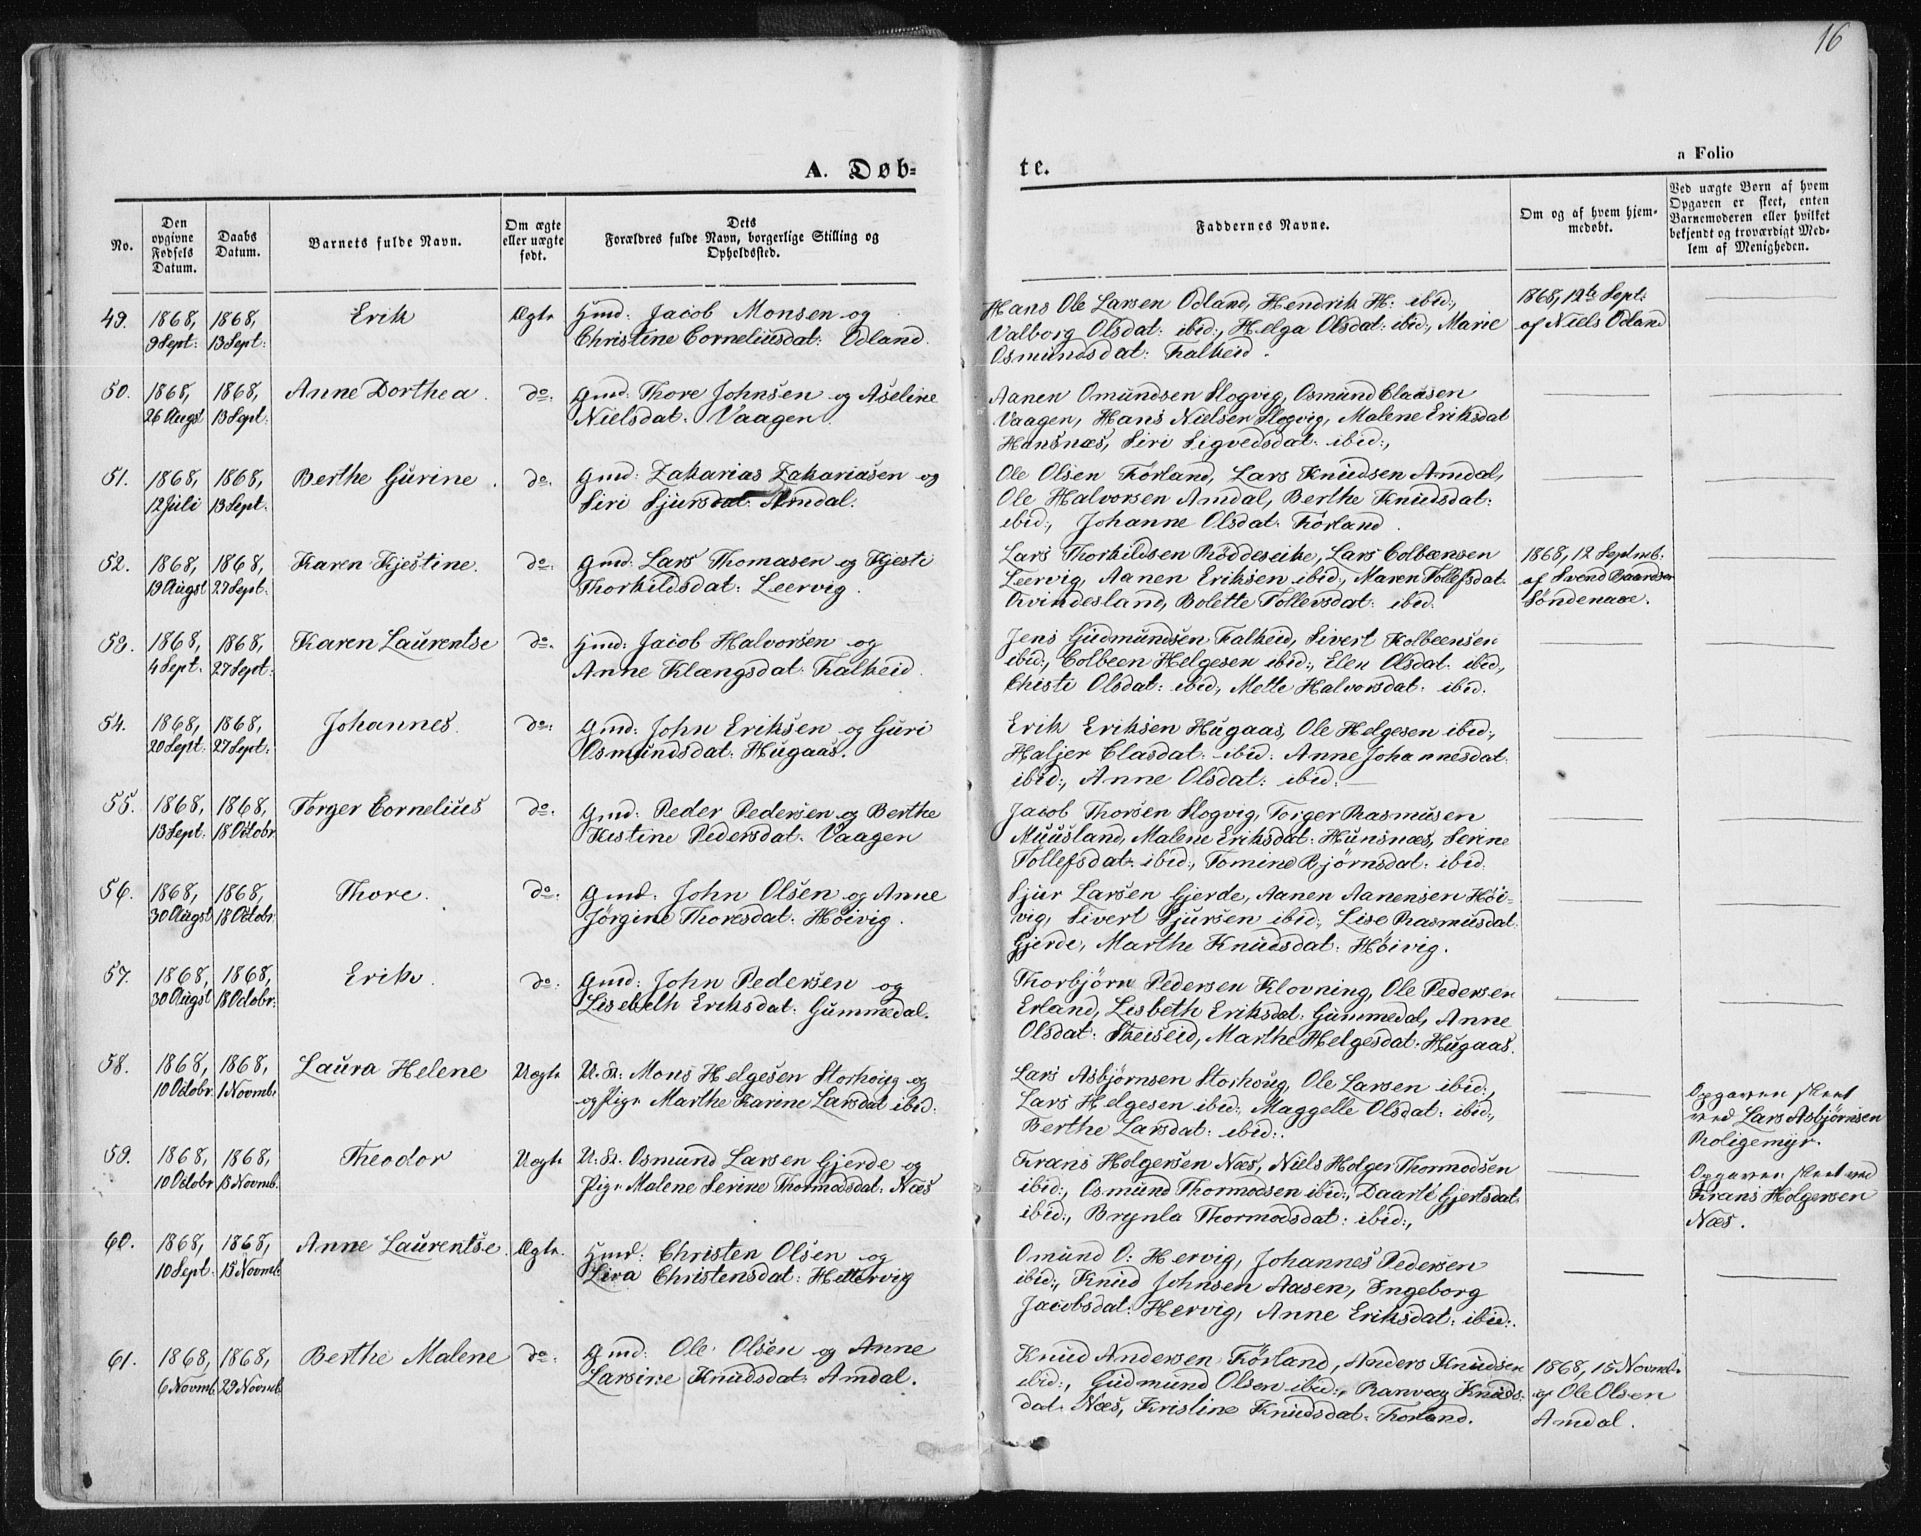 16
A. Døb-
te.
a Folio
No.
Den opgivne Fødsels Datum.
Daabs Datum.
Barnets fulde Navn.
Om ægte eller uægte født.
Dets Forældres fulde Navn, borgerlige Stilling og Opholdssted.
Faddernes Navne.
Om og af hvem hjemmedøbt.
Ved uægte Børn af hvem Opgaven er skeet, enten Barnemoderen eller hvilket bekjendt og troværdigt Medlem af Menigheden.
49. 1868, 1868, Erik Ægte Hmd: Jacob Monsen og
9 Sept: 13 Sept: Christine Corneliusdat: Odland.
Hans Ole Larsen Odland, Hendrik H: ibid:,
Valborg Olsdat: ibid:, Helga Olsdat: ibid, Marie
Osmundsdat: Falkeid.
1868, 12te Sept:
af Niels Odland
50. 1868, 1868, Anne Dorthea. do. Gmd: Thore Johnsen og Aseline
26 Augst 13 Sept: Nielsdat: Vaagen.
Aanen Omundsen Slogvig, Osmund Claasen
Vaagen, Hans Nielsen Slogvig, Malene Eriksdat
Hunsnæs, Siri Sigvedsdat: ibid:,
51. 1868, 1868, Berthe Gurine. do. Gmd: Zakarias Zakariasen og
12 Juli 13 Sept: Siri Sjursdat: Amdal.
Ole Olsen Førland, Lars Knudsen Amdal,
Ole Halvorsen Amdal, Berthe Knudsdat:
ibid:, Johanne Olsdat: Førland.
52. 1868, 1868, Karen Kjestine. do. Gmd: Lars Thomasen og Kjesti
19 Augst 27 Sept: Thorkildsdat: Leervig.
Lars Thorkildsen Røddeseike, Lars Colbeensen
Leervig, Aanen Eriksen ibid, Maren Tollefsdat:
Qvindesland, Bolette Tollevsdat: ibid.
1868, 12 Septmb.
af Svend Baardsen
Søndenaae.
53. 1868, 1868, Karen Laurentse do. Hmd: Jacob Halvorsen og
4 Sept. 27 Sept: Anne Klangsdat: Falkeid.
Jens Gudmundsen Falkeid, Sivert Kolbeensen
ibid:, Colbeen Helgesen ibid:, Elen Olsdat: ibid,
Christi Olsdat: ibid, Mette Halvorsdat: ibid.
54. 1868, 1868, Johannes. do. Gmd: John Eriksen og Guri
20 Sept: 27 Sept: Osmundsdat: Hugaas.
Erik Eriksen Hugaas, Ole Helgesen ibid:,
Haljer Clasdat: ibid: Anne Johannesdat:
ibid:, Anne Olsdat: ibid:
55. 1868, 1868, Torger Cornelius do. Gmd: Peder Pedersen og Berthe
13 Sept. 18 Octobr. Kistine Pedersdat: Vaagen
Jacob Thorsen Slogvig, Torger Rasmusen
Muusland, Malene Eriksdat: Hunsnæs, Serine
Tollefsdat: ibid:, Tomine Bjørnsdat: ibid.
56. 1868, 1868, Thore. do. Gmd: John Olsen og Anne
30 Augst 18 Octobr. Jørgine Thoresdat: Høivig.
Sjur Larsen Gjerde, Aanen Aanensen Høi-
vig, Sivert Sjursen ibid:, Lise Rasmusdat:
Gjerde, Marthe Knudsdat: Høivig.
57. 1868, 1868, Erik. do. Gmd: John Pedersen og
30 Augst 18 Octobr: Lisebeth Eriksdat: Gummedal.
Thorbjørn Pedersen Klovning, Ole Pedersen
Erland, Lisbeth Eriksdat: Gummedal, Anne
Olsdat: Skeiseid, Marthe Helgesdat: Hugaas.
58. 1868, 1868, Laura Helene Uægte U.K: Mons Helgesen Storhoug og
10 Octobr. 1 Novmb. og Pige Marthe Karine Larsdat ibid:
Lars Asbjørnsen Storhoug, Ole Larsen ibid:,
Lars Helgesen ibid:, Maggelle Olsdat: ibid:,
Berthe Larsdat: ibid:.
Opgaven skeet
ved Lars Asbjørnsen
Roligemyr.
59. 1868, 1868, Theodor Uægte U.K. Osmund Larsen Gjerde og
10 Octobr 15 Novmb. Pige Malene Serine Thormodsdat: Næs
Frans Holgersen Næs, Niels Holger Thormodsen
ibid:, Osmund Thormodsen ibid:, Daarte Gjertsdat:
ibid:, Brynla Thormodsdat: ibid:,
Opgaven skeet ved
Frans Holgersen
Næs.
60. 1868, 1868, Anne Laurentse. Ægte. Hmd: Christen Olsen og
10 Sept: 15 Novmb. Siva Christensdat: Hettervig
Omund O: Hervig, Johannes Pedersen
ibid:, Knud Johnsen Aasen, Ingeborg
Jacobsdat: Hervig, Anne Eriksdat: ibid:.
61. 1868, 1868, Berthe Malene do. Gmd: Ole Olsen og Anne
6 Novmb. 29 Novmb. Larsine Knudsdat: Amdal.
Knud Andersen Førland, Anders Knudsen
ibid:, Gudmund Olsen ibid:, Ranvæg Knuds-
dat: Næs, Kristine Knudsdat: Førland.
1868, 15 Novmb.
af Ole Olsen
Amdal.